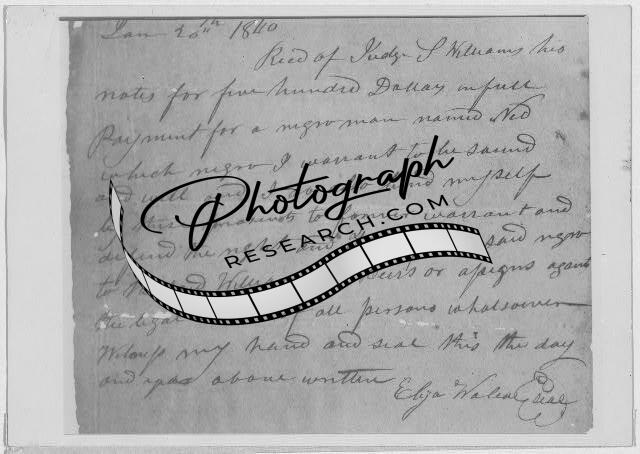 Jan 20th 1840
Recd of Judge S Williams his
notes for five hundred Dollars in full
Payment for a negro man named Ned
which negro I warrant to be sound
and well and I myself
warrant and
defend the right said negro
to or asigns against
the legal of all persons whatsoever
Witness my hand and seal this the day
and year above written
Eliza Seal
Photograph
RESEARCH.COM